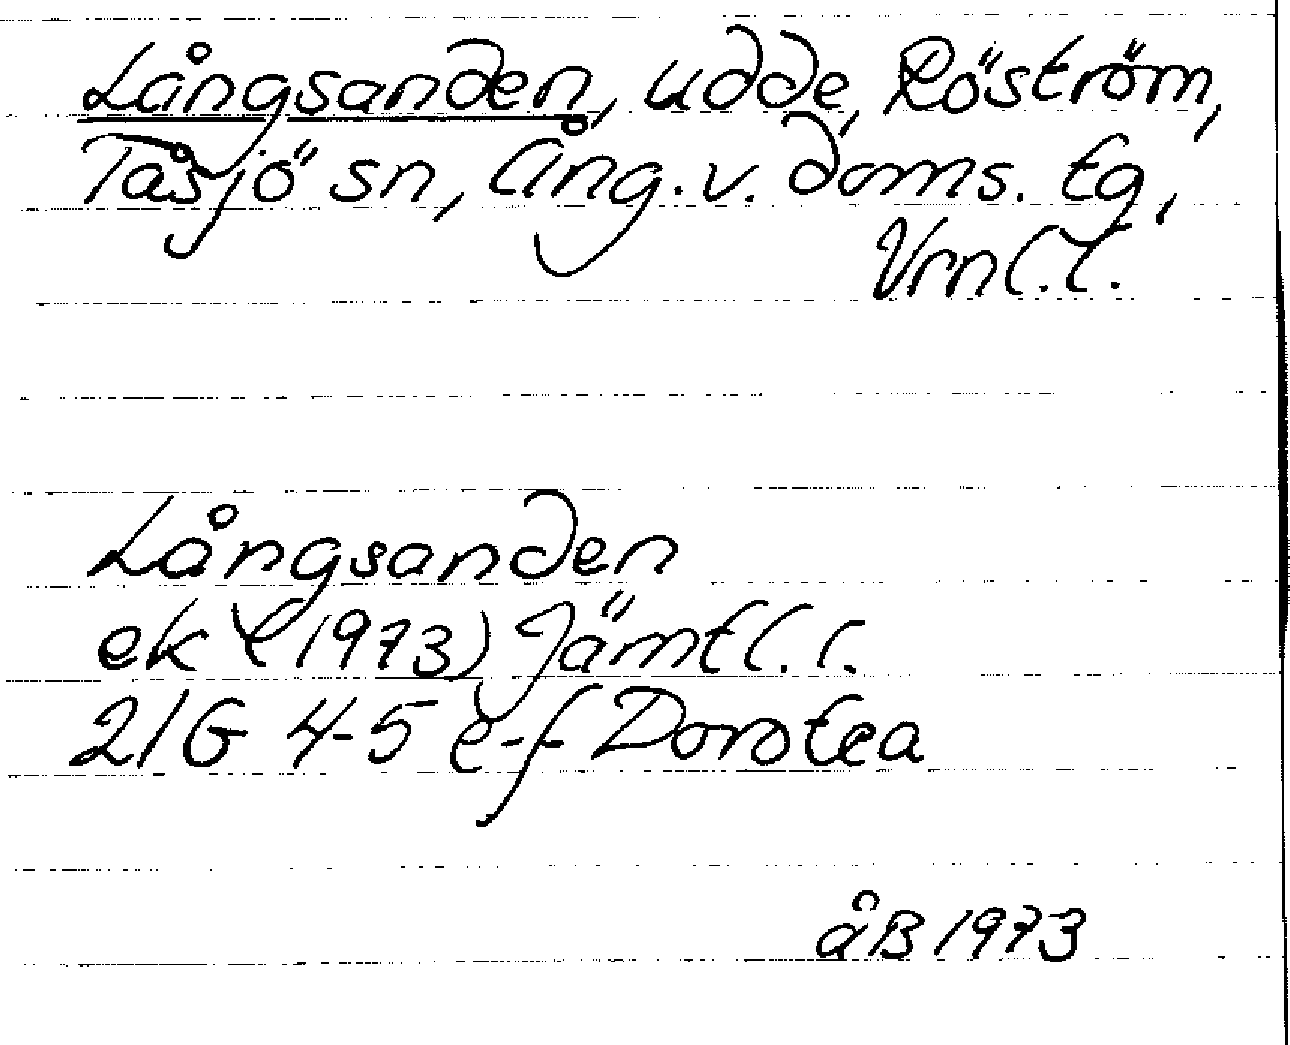 Långsanden, udde, Röström,
Tåsjö sn, Ång. v. doms. tg,
Vrnl. l.
Långsanden
ek (1973) Jämtl. l.
21G 4-5 e-f Dorotea
åB 1973